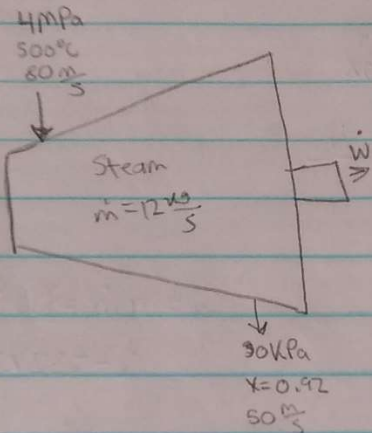 4MPa
500°C
80 m/s
Steam
ṁ=12 kg/s
Ẇ
30KPa
X=0.92
50 m/s